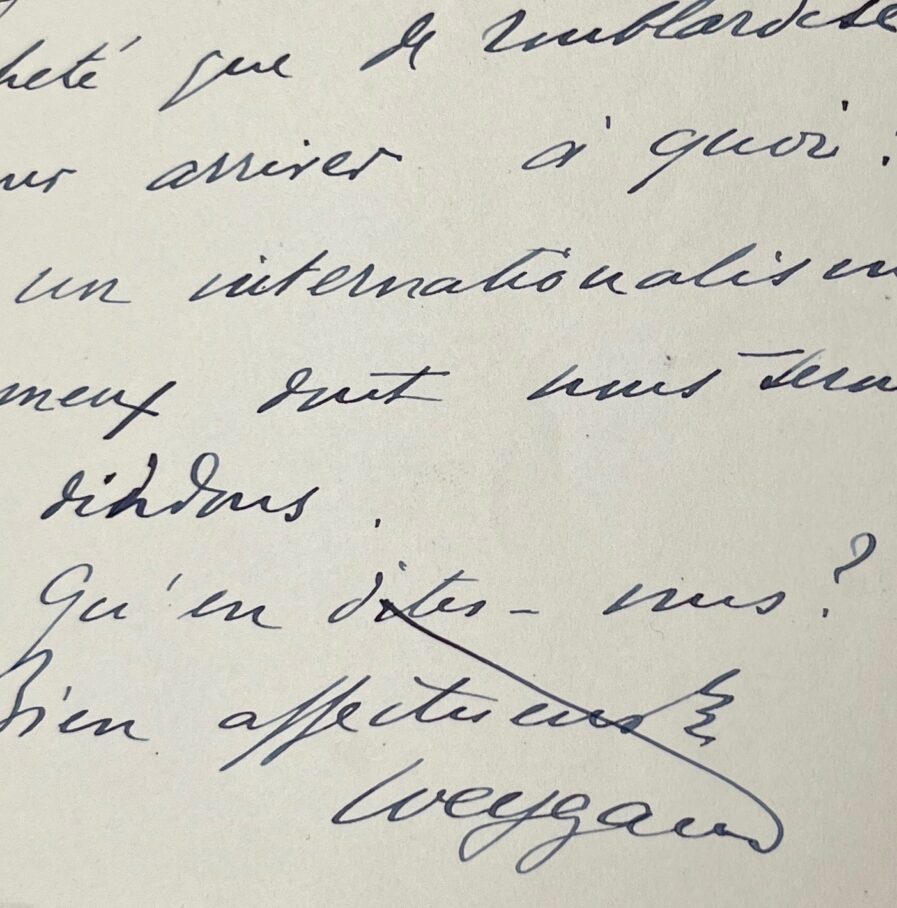 heté que de roublardise
ur arriver à quoi ?
un internationalism
meux dont nous sero
dindons.
Qu'en dites-vous ?
Bien affectueusᵗ
Weygand